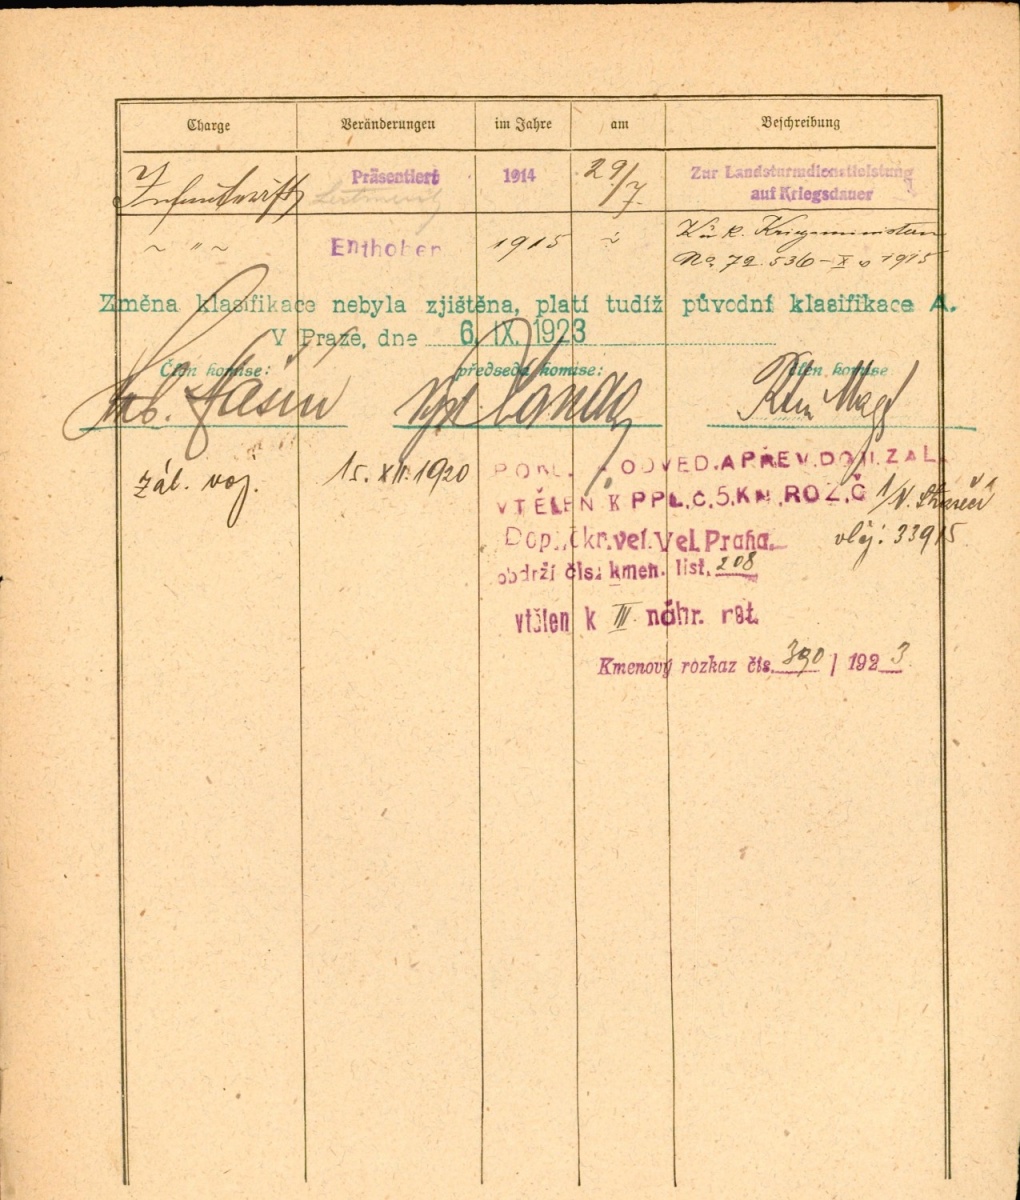 Charge Veränderungen im Jahre am Beschreibung
Infanterist Präsentiert 1914 29/7. Zur Landsturmdienstleistung
auf Kriegsdauer
~ " ~ Enthoben 1915 ~ K. u. k. Kriegsministerium
No. 72.536-X v 1915
Změna klasifikace nebyla zjištěna, platí tudíž původní klasifikace A.
V Praze, dne 6. IX. 1923
Člen komise: předseda komise: člen komise
zál. voj. 15. XII. 1920 ODVED. A PŘEV. DO II. ZÁL.
VTĚLEN K PPL. Č. 5. KM. ROZ. Č
Dopl. okr. vel. Vel. Praha.
vlčj: 33915
obdrží čís. kmen. list. 208
vtělen k III náhr. rot.
Kmenový rozkaz čís. 390 / 1923